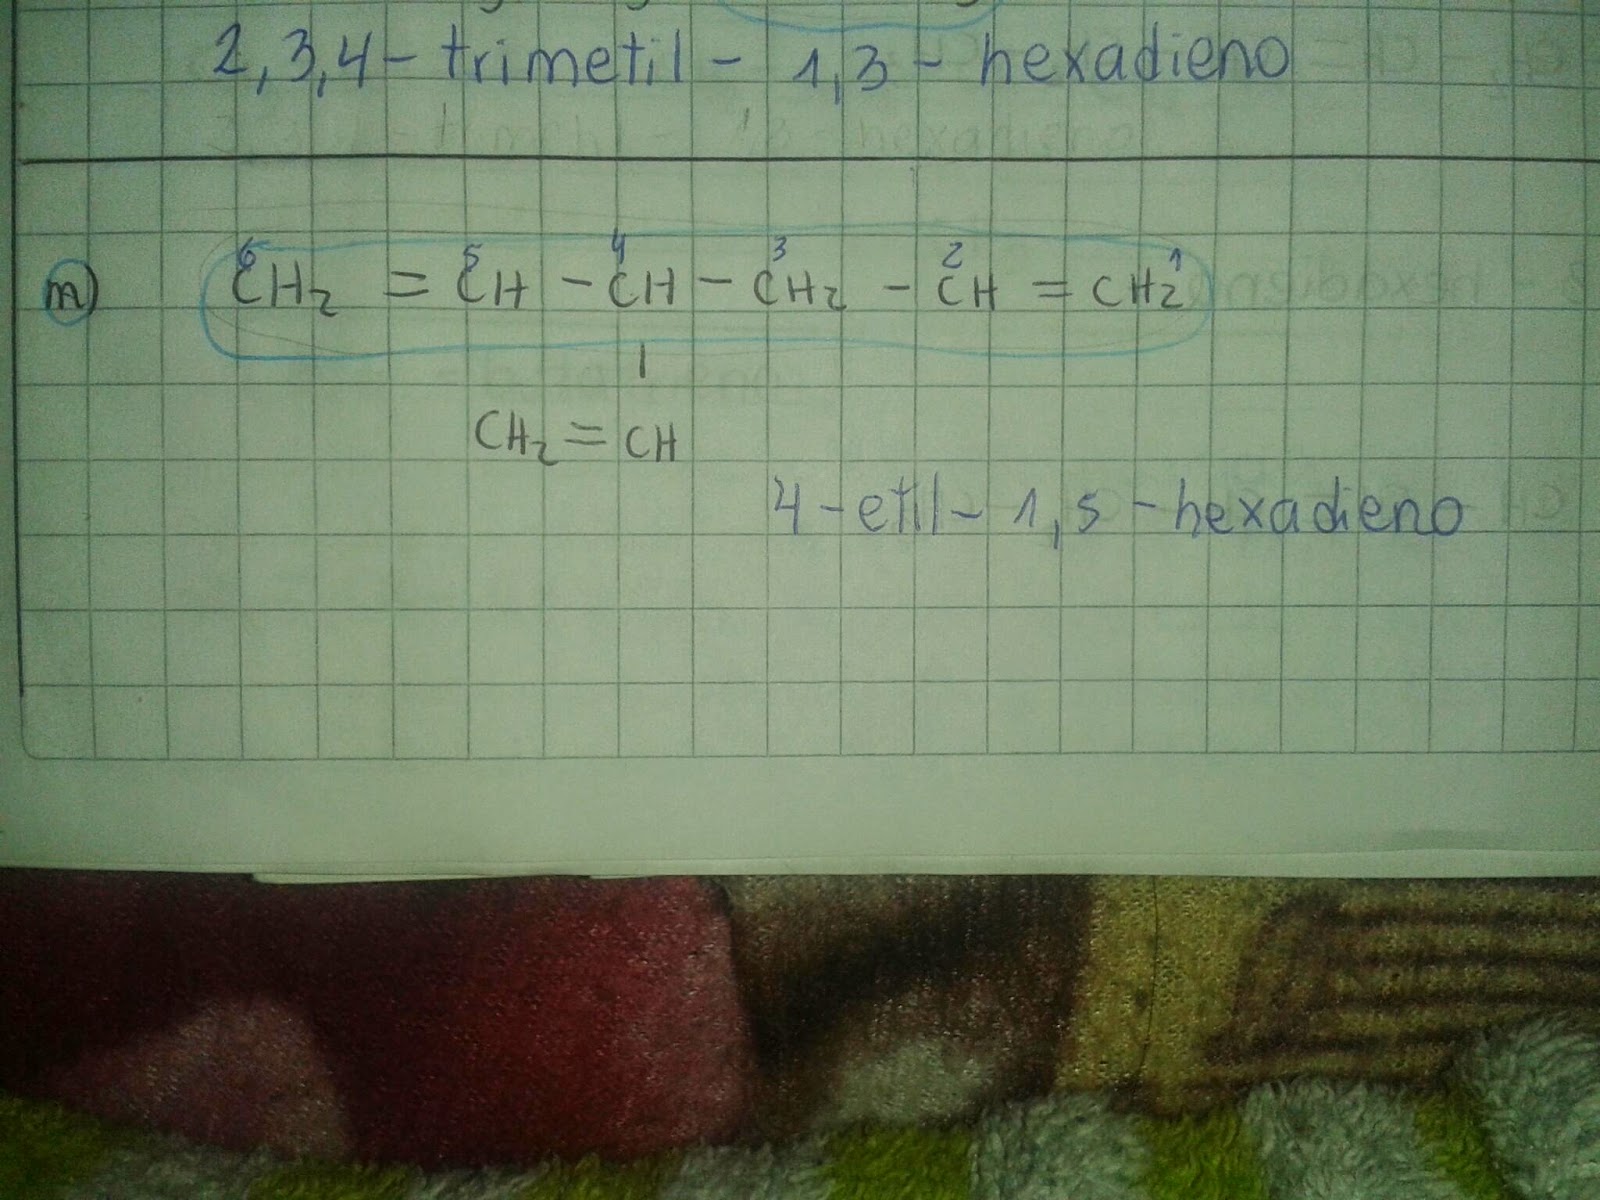 2,3,4 - trimetil - 1,3 - hexadieno
m)
6 5 4 3 2 1
CH2 = CH - CH - CH2 - CH = CH2
|
CH2 = CH
4 - etil - 1,5 - hexadieno